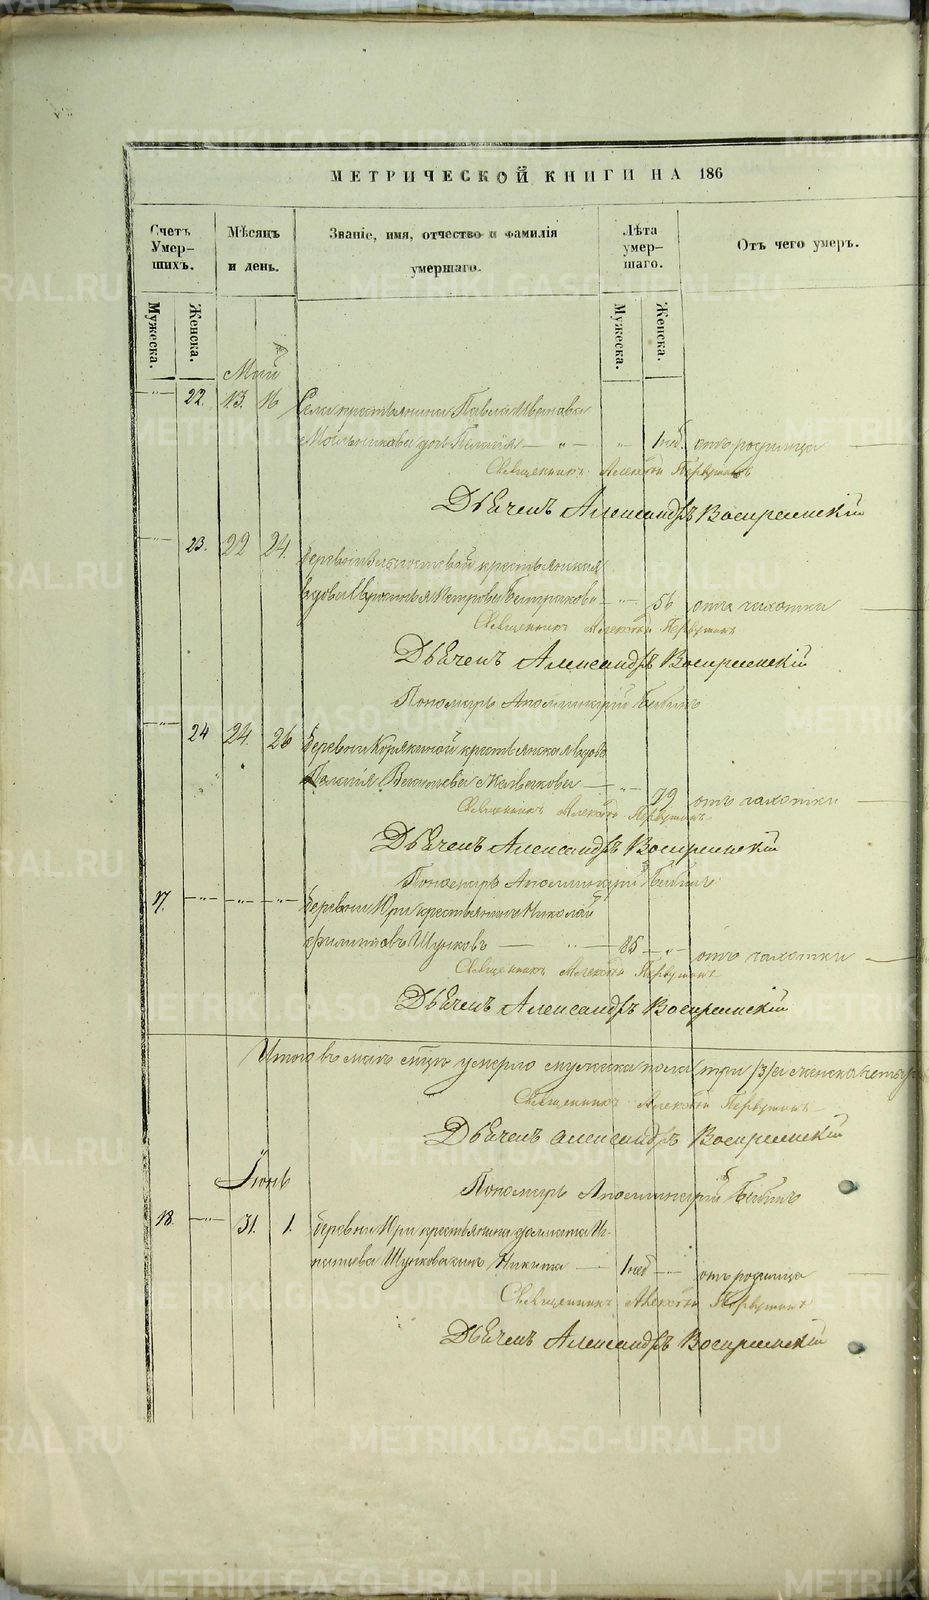 МЕТРИЧЕСКОЙ КНИГИ НА 186
Счетъ Умер- шихъ.
Мѣсяцъ и день.
Званіе, имя, отчество и фамилія умершаго.
Лѣта умер- шаго.
Отъ чего умеръ.
Мужеска.
Женска.
Мужеска.
Женска.
Май
22. 13. 16 Села крестьянина Павла Иванова
дочь Пелагія 1 нед. отъ родимца
Священникъ Алексѣй Первушинъ
Дьячекъ Александръ Воскресенскій
23. 22 24. Деревни крестьянская
вдова Петрова 56 отъ чахотки
Священникъ Алексѣй Первушинъ
Дьячекъ Александръ Воскресенскій
Пономарь Аполлинарій
24 24. 26 Деревни Корякиной крестьянская вдова
Пелагія Васильева 79 отъ чахотки
Священникъ Алексѣй Первушинъ
Дьячекъ Александръ Воскресенскій
Пономарь Аполлинарій
17. Деревни крестьянинъ Николай
Филиповъ Шунковъ 85 отъ чахотки
Священникъ Алексѣй Первушинъ
Дьячекъ Александръ Воскресенскій
Итого въ маѣ м-цѣ умерло мужеска пола три /3/ а женска
Священникъ Алексѣй Первушинъ
Дьячекъ Александръ Воскресенскій
Пономарь Аполлинарій
Іюнь
18. 31. 1. Деревни крестьянина
Шункова сынъ Никита 1 нед отъ родимца
Священникъ Алексѣй Первушинъ
Дьячекъ Александръ Воскресенскій
METRIKI.GASO-URAL.RU